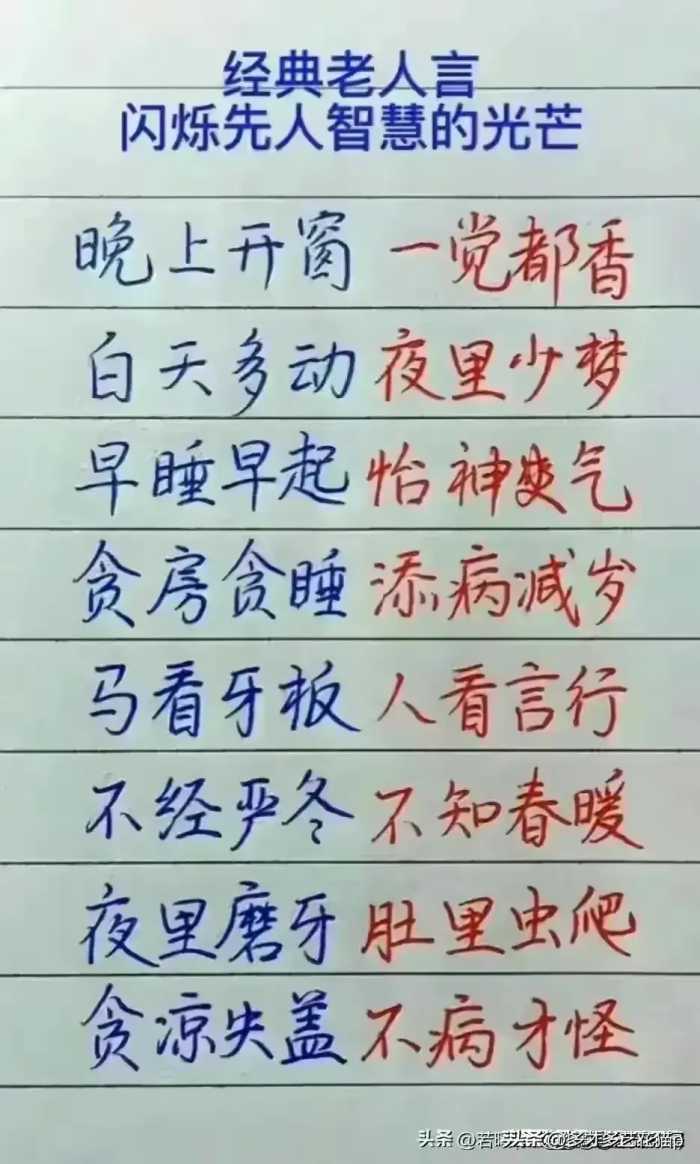 经典老人言
闪烁先人智慧的光芒
晚上开窗 一觉都香
白天多动 夜里少梦
早睡早起 怡神爽气
贪房贪睡 添病减岁
马看牙板 人看言行
不经严冬 不知春暖
夜里磨牙 肚里虫爬
贪凉失盖 不病才怪
头条 @